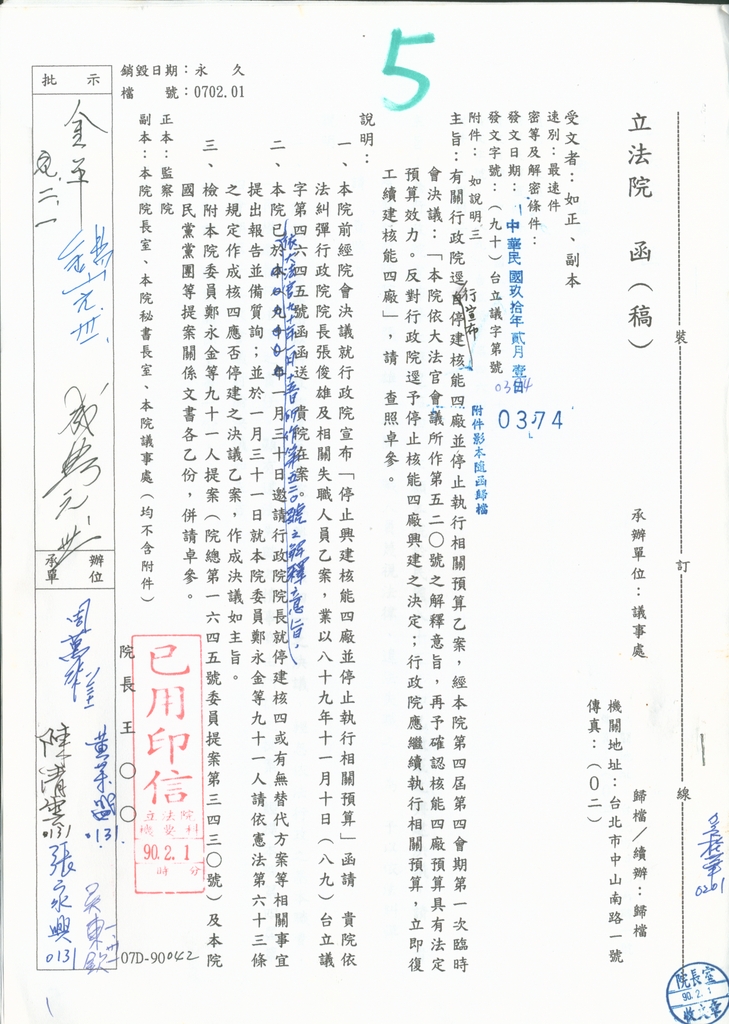 5
立法院 函（稿）
承辦單位：議事處
歸檔／續辦：歸檔
機關地址：台北市中山南路一號
傳真：（０二）
裝
訂
線
受文者：如正、副本
速別：最速件
密等及解密條件：
發文日期：中華民國玖拾年貳月壹日
發文字號：（九十）台立議字第號
0374
附件：如說明三
附件影本隨函歸檔
主旨：有關行政院逕自停建核能四廠並停止執行相關預算乙案，經本院第四屆第四會期第一次臨時
行宣布
會決議：「本院依大法官會議所作第五二○號之解釋意旨，再予確認核能四廠預算具有法定
預算效力。反對行政院逕予停止核能四廠興建之決定；行政院應繼續執行相關預算，立即復
工續建核能四廠」，請 查照卓參。
說明：
一、本院前經院會決議就行政院宣布「停止興建核能四廠並停止執行相關預算」函請 貴院依
法糾彈行政院院長張俊雄及相關失職人員乙案，業以八十九年十一月十日（八九）台立議
字第四六四五號函函送 貴院在案。
依大法官九十年一月十五日所作第五二○號之解釋意旨，
二、本院已於九十年一月三十日邀請行政院院長就停建核四或有無替代方案等相關事宜
提出報告並備質詢；並於一月三十一日就本院委員鄭永金等九十一人請依憲法第六十三條
之規定作成核四應否停建之決議乙案，作成決議如主旨。
三、檢附本院委員鄭永金等九十一人提案（院總第一六四五號委員提案第三四三○號）及本院
國民黨黨團等提案關係文書各乙份，併請卓參。
正本：監察院
副本：本院院長室、本院秘書長室、本院議事處（均不含附件）
院長王○○
已用印信
立法院
機要科
90.2.1
時 分
銷毀日期：永 久
檔 號：0702.01
批 示
金平
承辦
單位
周萬來
黃榮盛
0131
陳清雲
0131
張永興
0131
吳東欽
07D-90042
0201
院長室
90.2.1
收文章